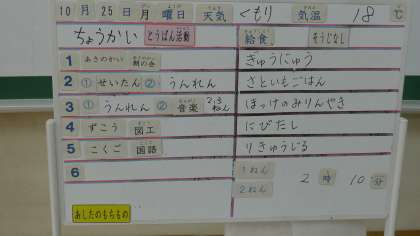 10月25日月曜日 天気 くもり 気温 18℃
ちょうかい とうばん活動 給食 そうじなし
1 あさのかい 朝の会 ぎゅうにゅう
2 ① せいたん ② うんれん さといもごはん
3 ① うんれん ② 音楽 2,3ねん ほっけのみりんやき
4 ずこう 図工 にびたし
5 こくご 国語 りきゅうじる
6 1ねん
2ねん 2時10分
あしたのもちもの